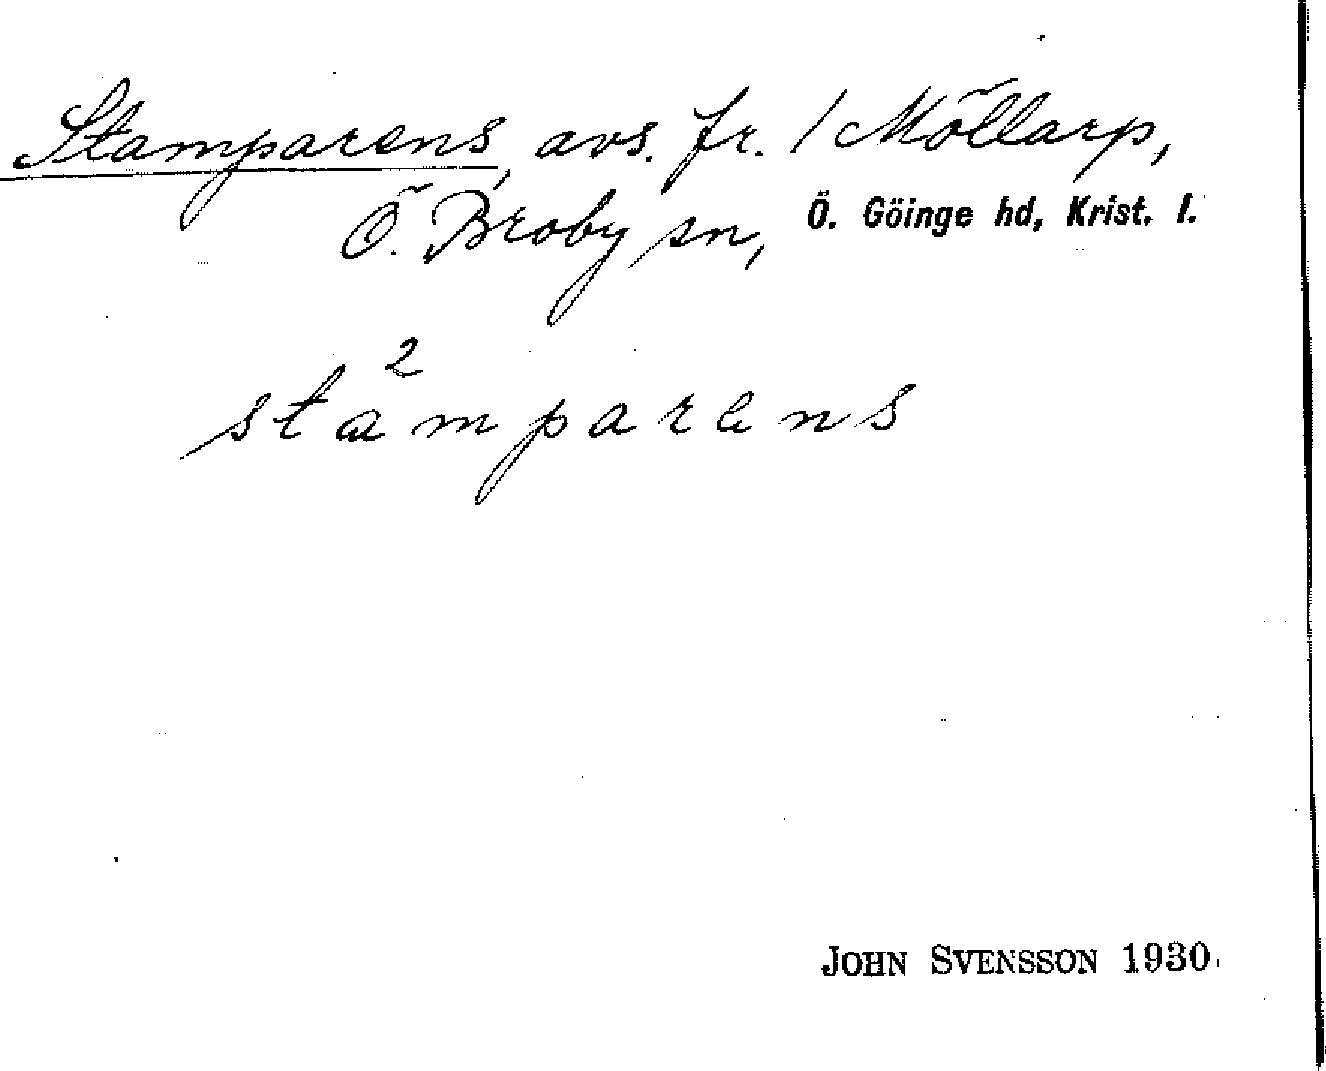 Stamparens, avs. fr. 1 Möllarp,
Ö. Broby sn, Ö. Göinge hd, Krist. l.
sta²mparens
JOHN SVENSSON 1930.